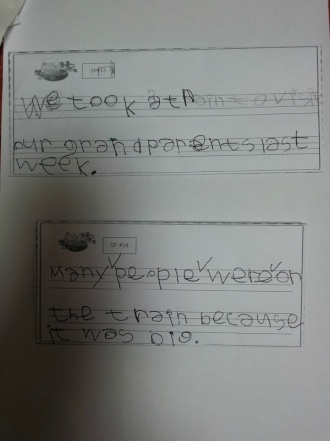 We took a train to visit
our grandparents last
week.
SP #34
Many people were on
the train because
it was big.